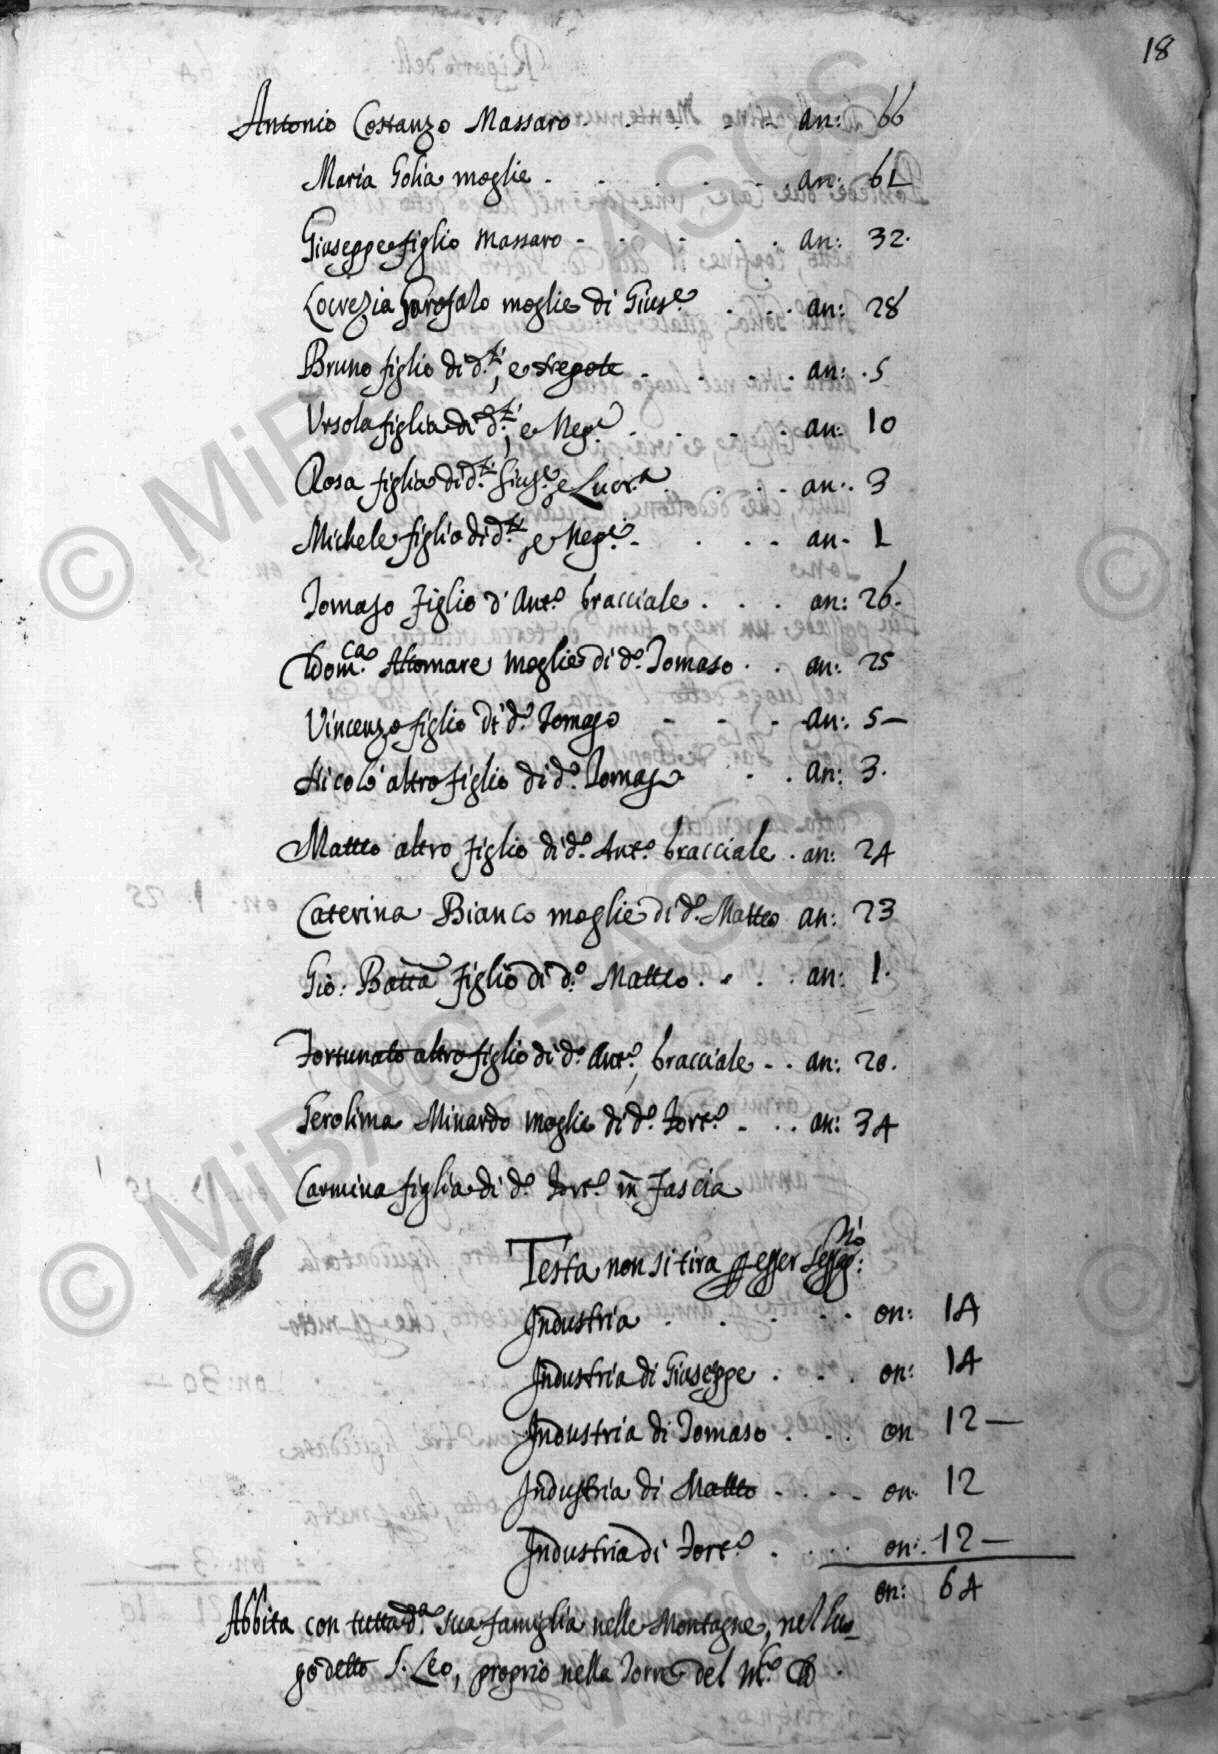 18
Antonio Costanzo Massaro - - - - an: 66
Maria Golia moglie - - - - - an: 61
Giuseppe figlio Massaro - - - - - an: 32.
Locrezia Garofalo moglie di Gius.e - - - an: 28
Bruno figlio di d.ti, e Nepote - - - - an: 5
Ursola figlia di d.ti, e Nep.e - - - - an: 10
Rosa figlia di d.ti Gius.e e Lucr.a - - - an: 3
Michele figlio di d.ti, e Nep.e - - - - an- 1
Tomaso figlio d'Ant.o bracciale . . . an: 26.
Dom.ca Altomare moglie di d.o Tomaso . . an: 25
Vincenzo figlio di d.o Tomaso - - - an: 5-
Nicolò altro figlio di d.o Tomaso - . an: 3.
Matteo altro figlio di d.o Ant.o bracciale . an: 24
Caterina Bianco moglie di d.o Matteo an: 23
Giò: Batta figlio di d.o Matteo . . . . an: 1.
Fortunato altro figlio di d.o Ant.o, bracciale - . an: 20.
Gerolima Minardo moglie di d.o Fort.o - . . an: 34
Carmina figlia di d.o Fort.o in fascia
Testa non si tira esser
Industria . . . . . . on: 14
Industria di Giuseppe . . . on: 14
Industria di Tomaso . . . on 12 —
Industria di Matteo . . . . on 12
Industria di Fort.o . . . on: 12 —
on: 64
Abbita con tutta d.a sua famiglia nelle Montagne, nel luo-
go detto S. Leo, proprio nella Torre del M.co
© MiBAC - ASCS
© MiBAC - ASCS
©
©
- ASCS